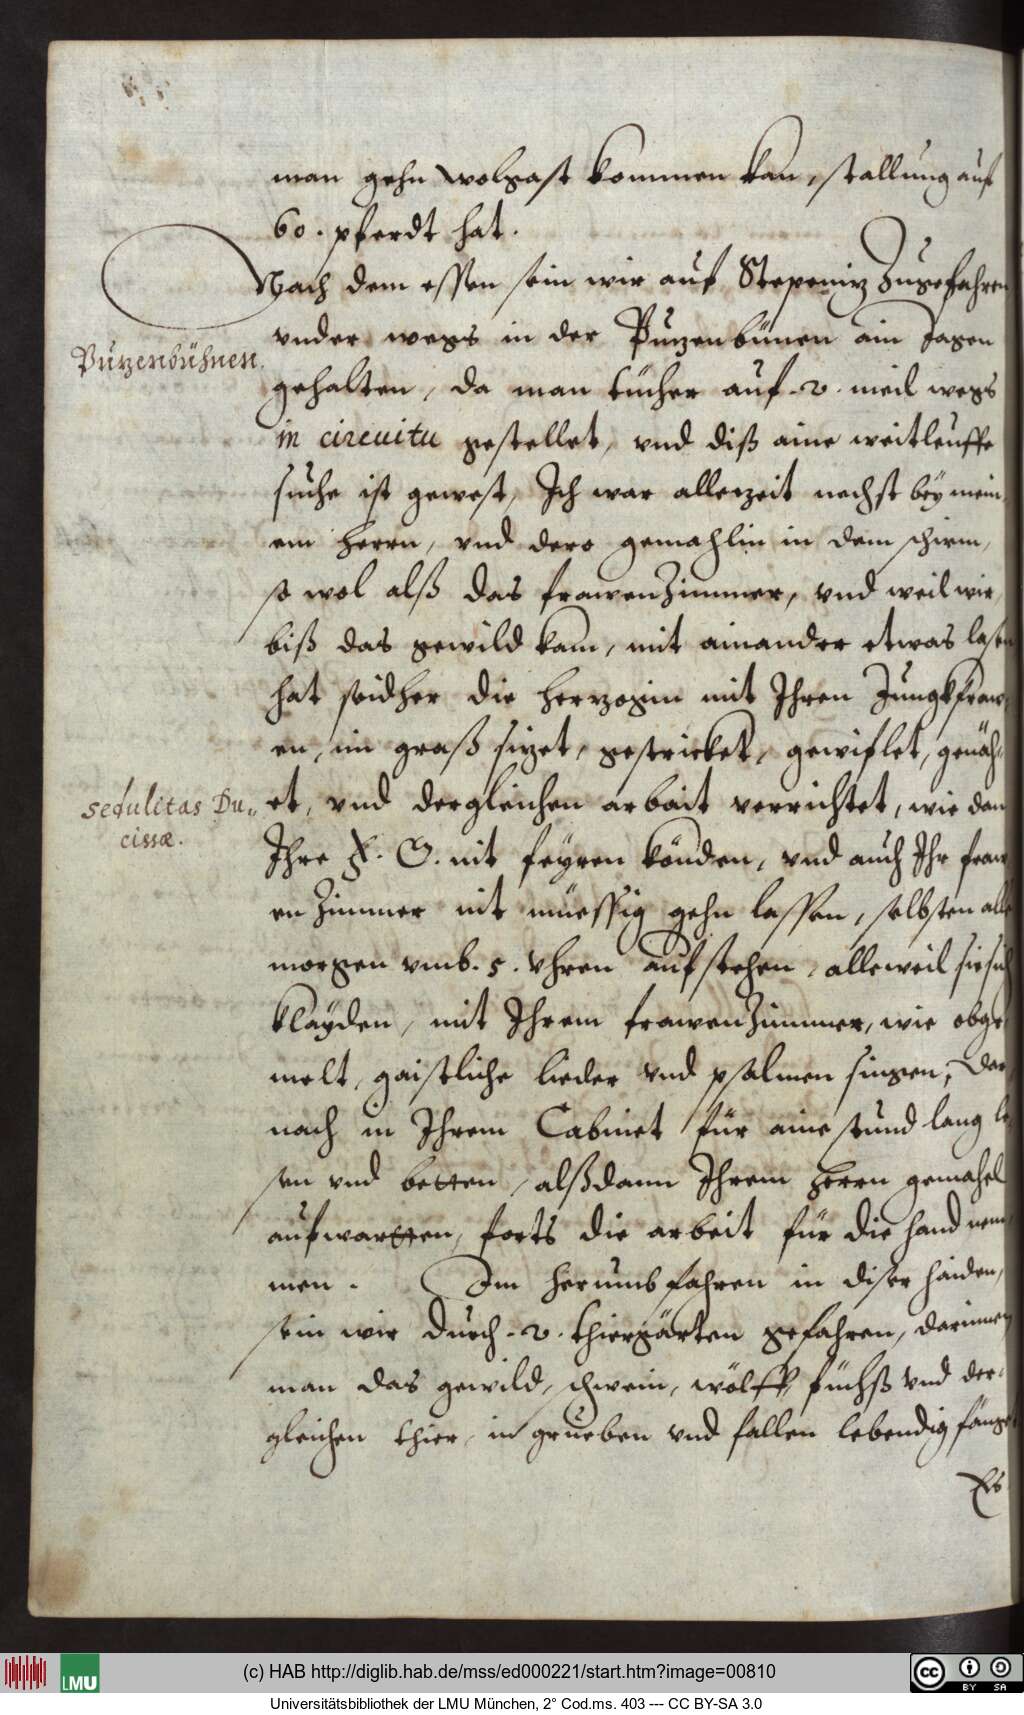 man gehn Wolgast kommen kan, stallung auf
60. pferdt hat.
Nach dem essen sein wir auf Stepenitz Zugefahren
vnder wegs in der Putzenbünen ain Jagen
Putzenbühnen.
gehalten, da man tücher auf .2. meil wegs
in circuitu gestellet, vnd diß aine weitleuffe
suche ist gewest, Ich war allerzeit nechst bey mein
em herrn, vnd dero gemahlin in dem schirm,
so wol alß das frawenZimmer, vnd weil wir,
biß das gewild kam, mit ainander etwas lasen
hat seidher die herzogin mit Ihren Jungkfraw
en, im graß sizet, gestricket, gewiflet, genäh
sedulitas Du„
cissæ.
et, vnd dergleichen arbait verrichtet, wie dan
Ihre F. G. nit feyren könden, vnd auch Ihr fraw
en Zimmer nit müessig gehn lassen, selbsten alle
morgen vmb .5. Vhren aufstehen, alleweil sie sich
klayden, mit Ihrem frawenZimmer, wie obge
melt, gaistliche lieder vnd psalmen singen, Dar
nach in Ihrem Cabinet für aine stund lang le
sen vnd betten, alßdann Ihrem herrn gemahel
aufwartten, forts die arbeit für die hand nem
men. Im herumb fahren in diser haiden,
sein wir durch .2. thiergärten gefahren, darinnen
man das gewild, schwein, wölff, füchß vnd der
gleichen thier, in grueben vnd fallen lebendig fänge
Es
LMU
(c) HAB http://diglib.hab.de/mss/ed000221/start.htm?image=00810
cc BY SA
Universitätsbibliothek der LMU München, 2° Cod.ms. 403 --- CC BY-SA 3.0